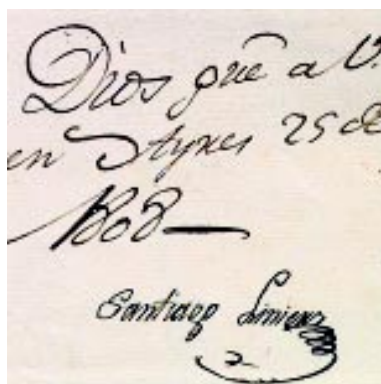 Dios gue̅ a V.
en Ayres 25 de
1808
Santiago Liniers